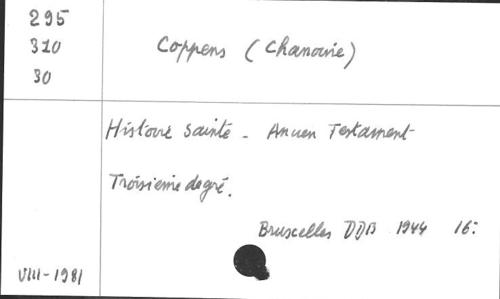 295
310
30
Coppens (Chanoine)
Histoire Sainte - Ancien Testament
Troisième degré.
Bruxelles DDB 1944 16:
VIII-1981